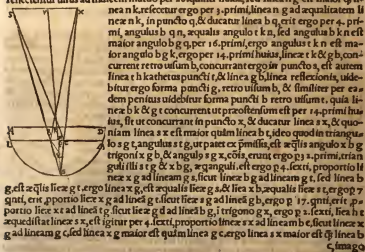 nea n k, resecetur ergo per .3. primi, linea n g ad æqualitatem li
neæ n k, in puncto q, & ducatur linea b q, erit ergo per 4. pri-
mi, angulus b q n, æqualis angulo t k n, sed angulus b k n est
maior angulo b g k, ergo per 14. primi huius, lineæ t k & g b, con-
current retro uisum b, concurrant ergo in puncto s, est autem
linea t h kathetus puncti t, & linea g b, linea reflexionis, uide-
bitur ergo forma puncti g, retro uisum b, & similiter per ea-
dem penitus uidebitur forma puncti b retro uisum t, quia li-
neæ b k & g t concurrent ut præostensum est per 14. primi hu-
ius, sit ut concurrant in puncto x, & ducatur linea s x, & quo-
niam linea s x est maior quàm linea b t, ideo quod in triangu-
lo s g t, angulus s t g, ut patet ex præmissis, est æqlis angulo x b g
trigoni x g b, & angulus s g x, cōis, erunt ergo p 32. primi, trian
guli illi s t g & x b g, æquianguli. est ergo p 4. sexti, proportio li
neæ x g ad lineam g s, sicut lineæ b g ad lineam g t, sed linea b
g, est æqlis lineæ g t, ergo linea x g, est æqualis lineæ g s, & linea x b, æqualis lineæ s t, ergo p 7
qnti, erit ꝓportio lineæ x g ad lineā g t, sicut lineæ s g ad lineā g b, ergo p 17. qnti, erit ꝓ-
portio lineæ x t ad lineā t g sicut lineæ s b ad lineā b g, i trigono g x, ergo p 2. sexti, linea b t
æquedistat lineæ s x, est igitur per 4. sexti, proportio lineæ s x ad lineam b t, sicut lineæ x
g ad lineam g t, sed linea x g maior est quàm linea g t, ergo linea s x maior est q̃ linea b
t, imago